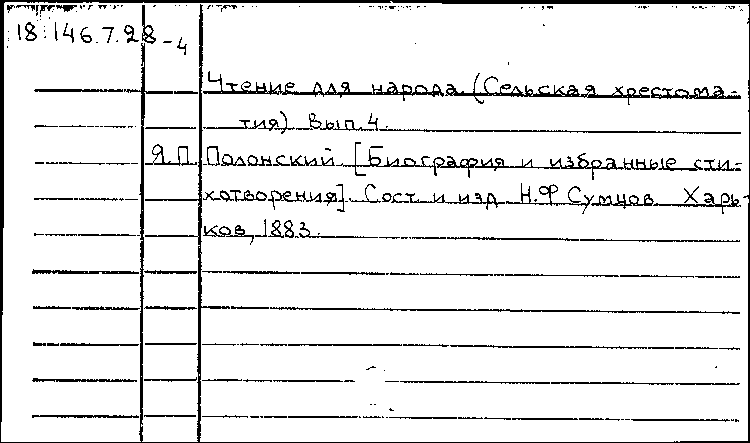 18.146.7.28-4
Чтение для народа (Сельская хрестома-
тия) Вып.4.
Я.П. Полонский [Биография и избранные сти-
хотворения]. Сост. и изд. Н.Ф Сумцов. Харь-
ков, 1883.